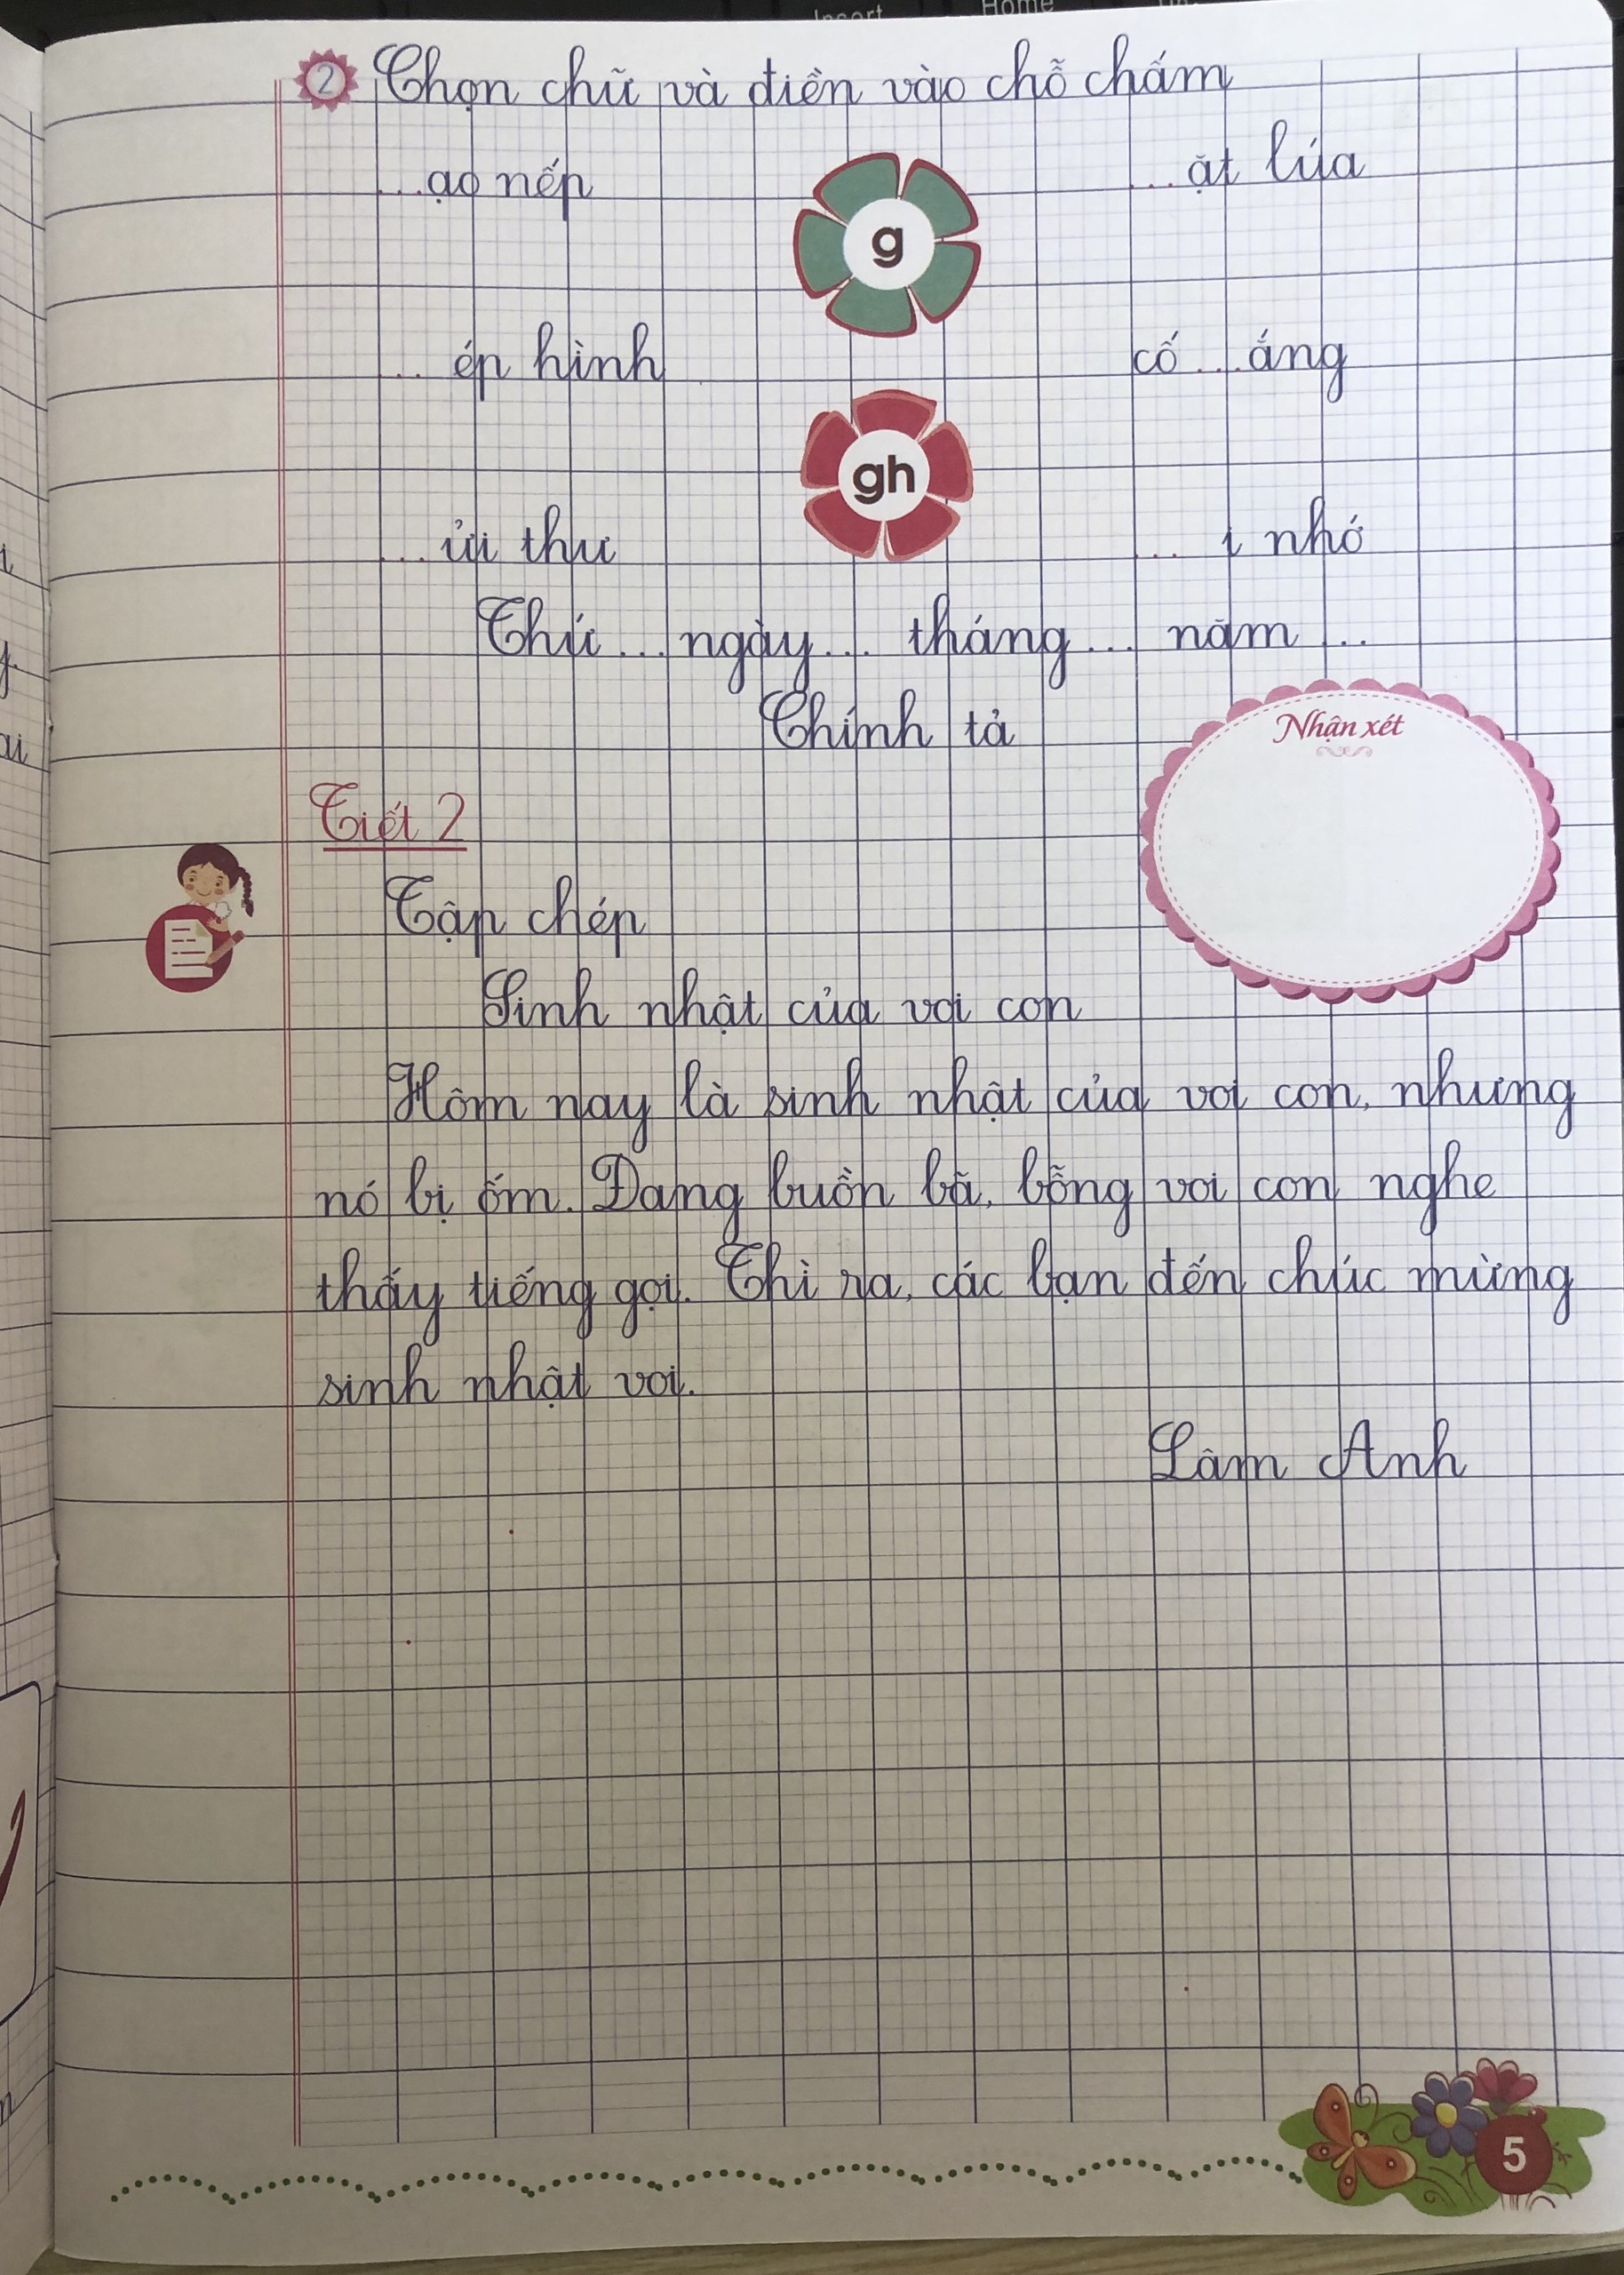 Insert Home
2 Chọn chữ và điền vào chỗ chấm
...ạo nếp ...ặt lúa
g
... ép hình cố ...ắng
gh
...ửi thư ... i nhớ
Thứ ... ngày ... tháng ... năm ...
Chính tả
Nhận xét
Tiết 2
Tập chép
Sinh nhật của voi con
Hôm nay là sinh nhật của voi con, nhưng
nó bị ốm. Đang buồn bã, bỗng voi con nghe
thấy tiếng gọi. Thì ra, các bạn đến chúc mừng
sinh nhật voi.
Lâm Anh
5